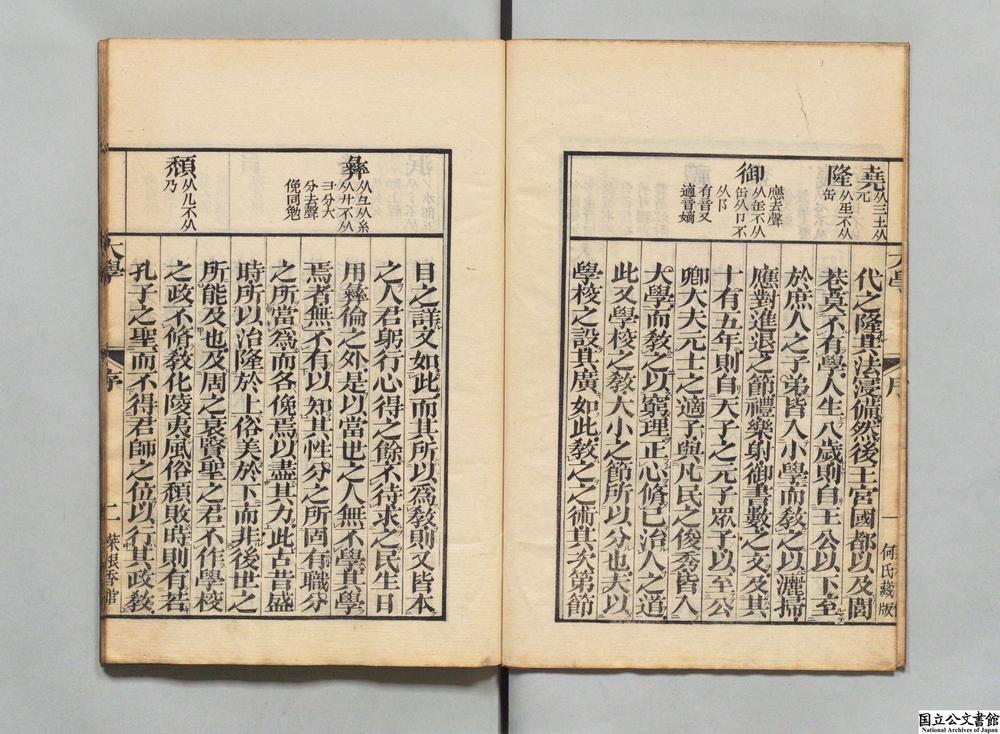 堯
从三土从
元
隆
从𤯓不从
缶
御
應去聲
从缶不从
缶从卩不
从阝
有音又
適音嫡
代之隆其法寖備然後王宮國都以及閭
巷莫不有學人生八歲則自王公以下至
於庶人之子弟皆入小學而教之以灑掃
應對進退之節禮樂射御書數之文及其
十有五年則自天子之元子眾子以至公
卿大夫元士之適子與凡民之俊秀皆入
大學而教之以窮理正心脩己治人之道
此又學校之教大小之節所以分也夫以
學校之設其廣如此教之之術其次第節
大學
序
一
何氏藏版
彝
从彑从糸
从廾不从
彐分大
分去聲
俛同勉
頹
从儿不从
乃
目之詳又如此而其所以為教則又皆本
之人君躬行心得之餘不待求之民生日
用彝倫之外是以當世之人無不學其學
焉者無不有以知其性分之所固有職分
之所當為而各俛焉以盡其力此古昔盛
時所以治隆於上俗美於下而非後世之
所能及也及周之衰賢聖之君不作學校
之政不脩教化陵夷風俗頹敗時則有若
孔子之聖而不得君師之位以行其政教
大學
序
二
菜根香館
国立公文書館
National Archives of Japan